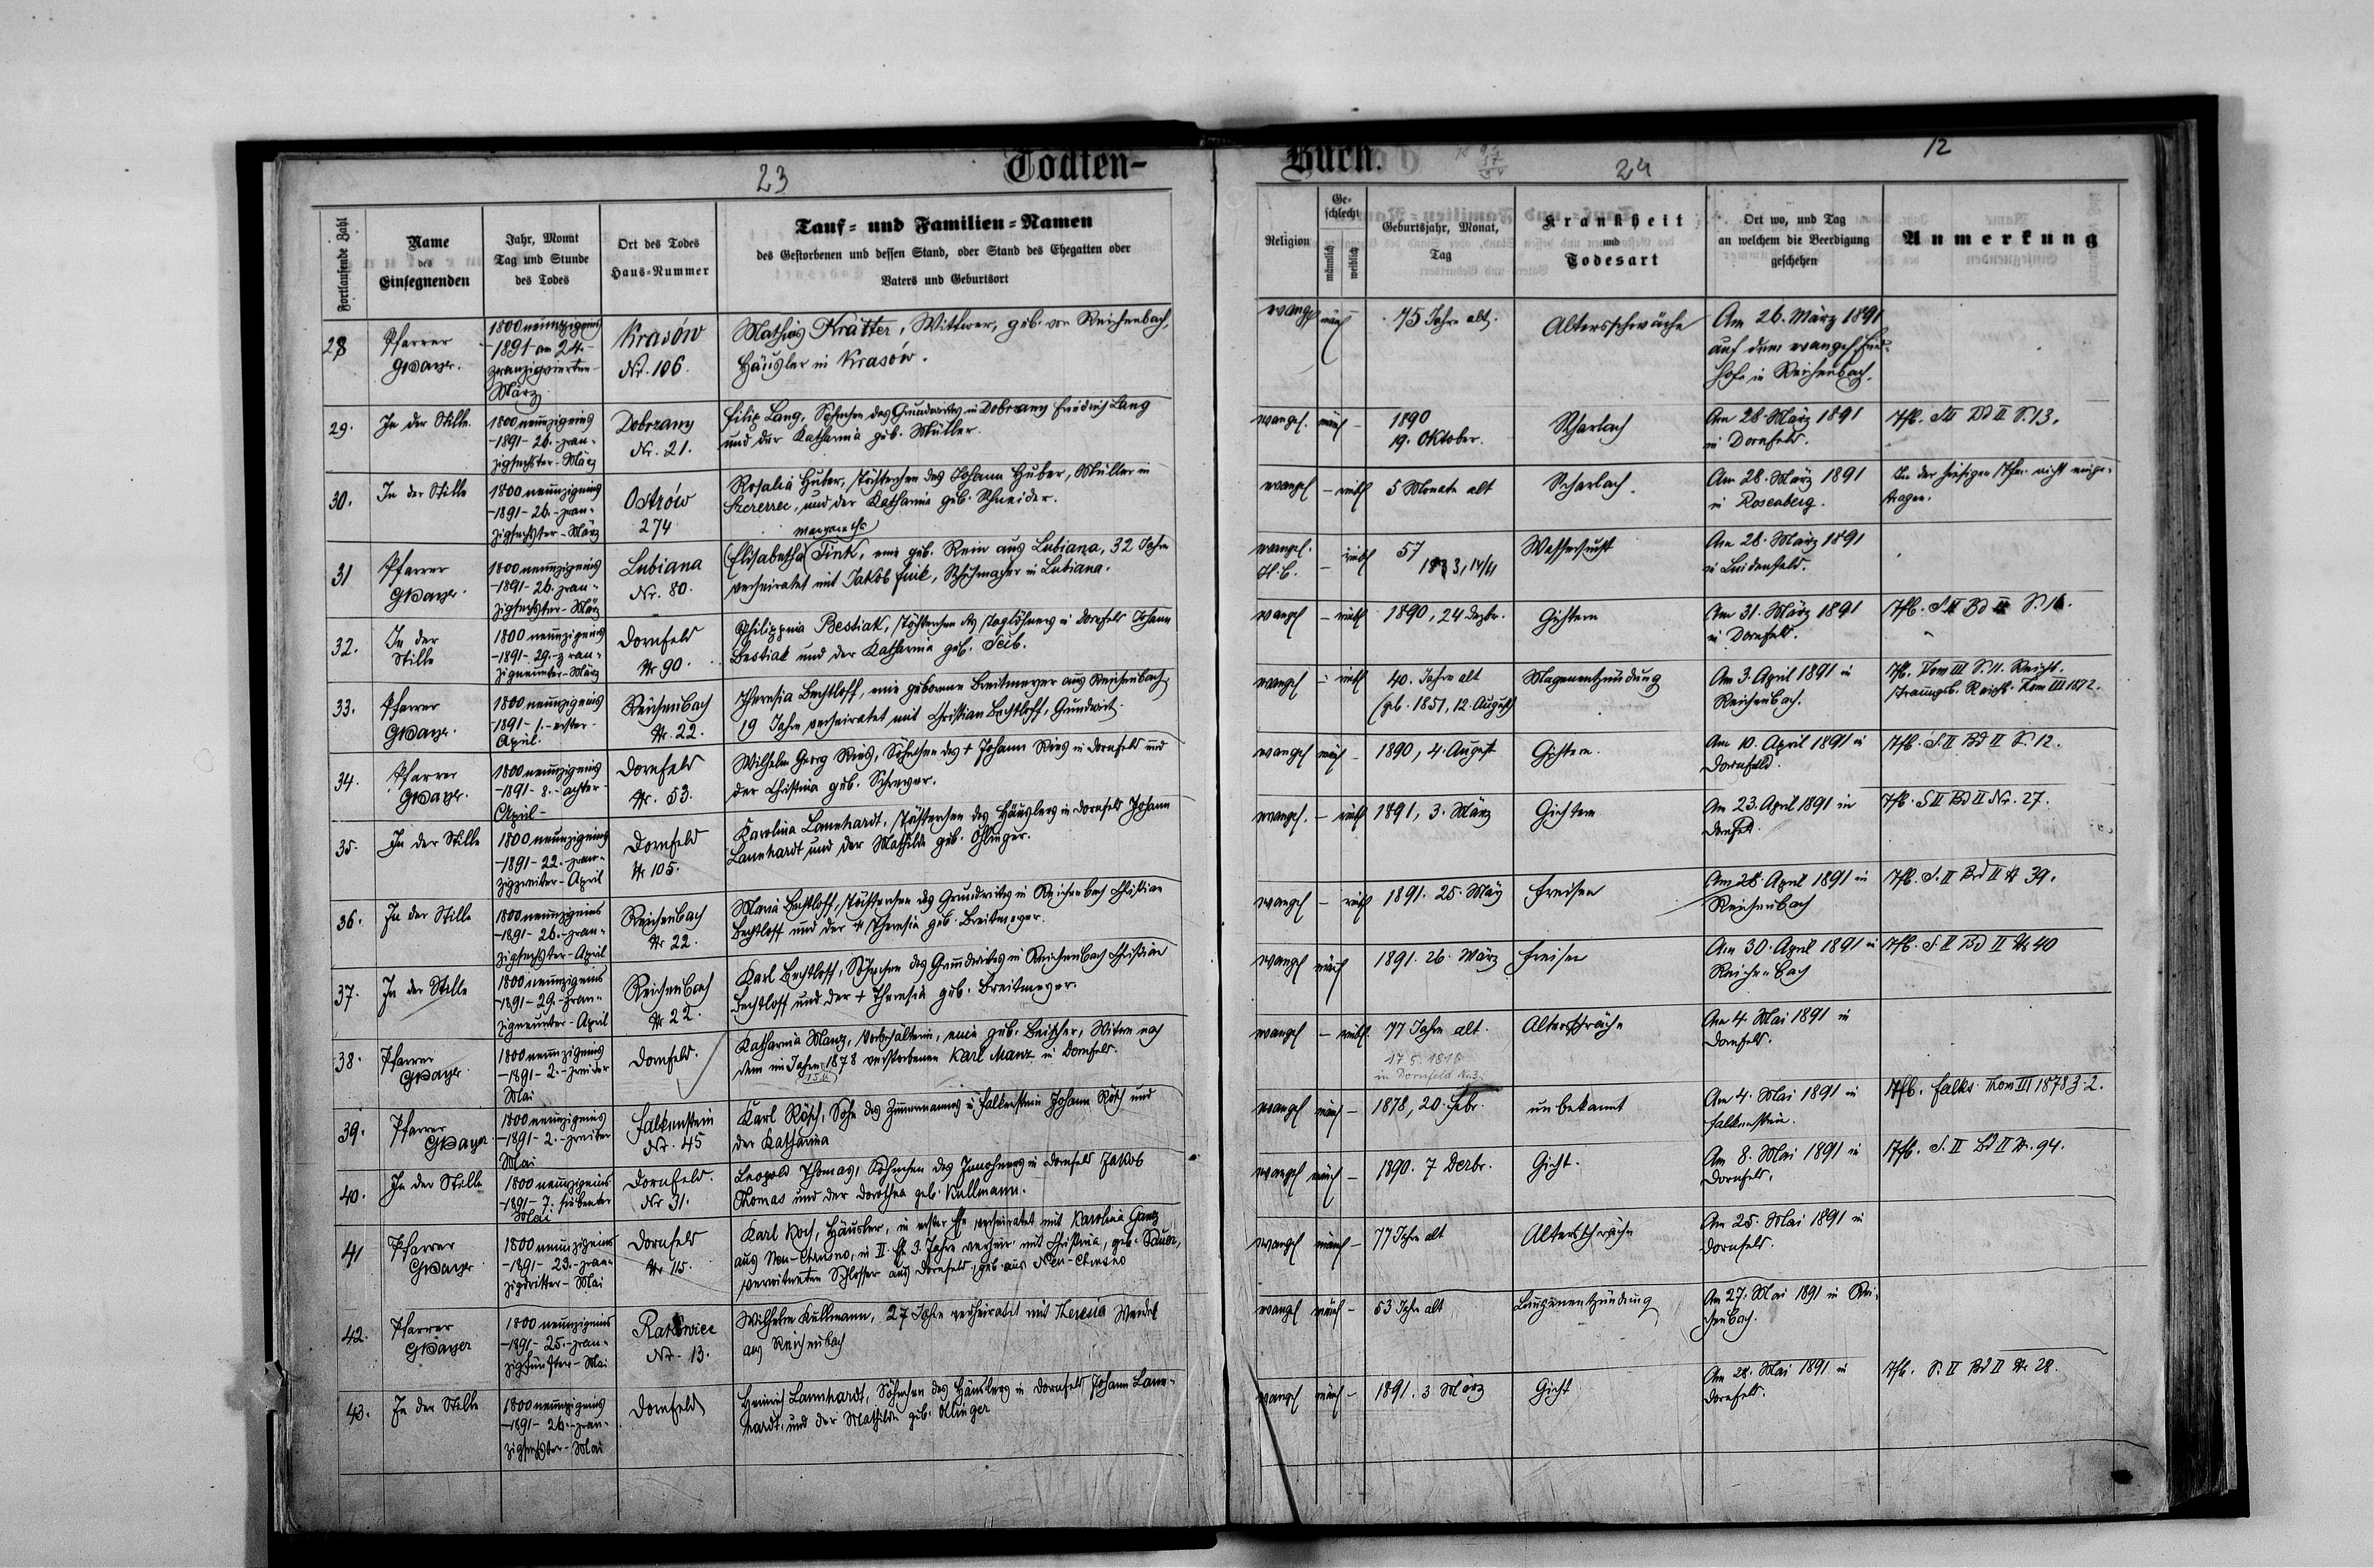 23
Todten-
Fortlaufende Zahl
Name
des
Einsegnenden
Jahr, Monat
Tag und Stunde
des Todes
Ort des Todes
Haus-Nummer
Tauf- und Familien-Namen
des Gestorbenen und dessen Stand, oder Stand des Ehegatten oder
Vaters und Geburtsort
28
Pfarrer
GBayer.
1800 neunzigeins
-1891 am 24.-
zwanzigvierten-
März
Krasów
Nr. 106.
Mathias Kratter, Wittwer, geb. von Reichenbach,
Häusler in Krasów.
29.
In der Stille.
1800 neunzigeins
-1891- 26.-zwan-
zigsechster-März
Dobrzany
Nr. 21.
Filip Lang, Söhnchen des Grundwirtes in Dobrzany Friedrich Lang
und der Katharina geb. Müller.
30.
In der Stille
1800 neunzigeins
-1891- 26.-zwan-
zigsechster-März
Ostrów
274
Rosalia Huber, Töchterchen des Johann Huber, Müller in
Szczerzec, und der Katharina geb. Schneider.
31
Pfarrer
GBayer.
1800 neunzigeins
-1891- 26. zwan-
zigsechster-März
Lubiana
Nr. 80.
Margaretha
(Elisabetha) Fink, eine geb. Rein aus Lubiana, 32 Jahre
verheiratet mit Jakob Fink, Schuhmacher in Lubiana.
32.
In der
Stille
1800 neunzigeins
-1891- 29.-zwan-
zigneunter-März
Dornfeld
Nr 90.
Philippina Bestiak, Töchterchen des Taglöhners in Dornfeld Johann
Bestiak und der Katharina geb. Seib.
33.
Pfarrer
GBayer.
1800 neunzigeins
-1891- 1.-erster-
April.
Reichenbach
Nr. 22.
Theresia Bechtloff, eine geborene Breitmayer aus Reichenbach,
19 Jahre verheiratet mit Christian Bechtloff, Grundwirt.
34.
Pfarrer
GBayer.
1800 neunzigeins
-1891- 8.-achter-
April-
Dornfeld
Nr. 53.
Wilhelm Georg Ries, Söhnchen des + Johann Ries in Dornfeld und
der Christina geb. Schreyer.
35.
In der Stille
1800 neunzigeins
-1891- 22.-zwan-
zigzweiter-April
Dornfeld
Nr 105.
Karolina Lannhardt, Töchterchen des Häuslers in Dornfeld Johann
Lannhardt und der Mathilde geb. Ohlinger.
36.
In der Stille
1800 neunzigeins
-1891- 26.-zwan-
zigsechster-April
Reichenbach
Nr 22.
Maria Bechtloff, Töchterchen des Grundwirtes in Reichenbach Christian
Bechtloff und der + Theresia geb. Breitmeyer.
37.
In der Stille
1800 neunzigeins
-1891- 29.-zwan-
zigneunter-April
Reichenbach
Nr 22.
Karl Bechtloff, Söhnchen des Grundwirtes in Reichenbach Christian
Bechtloff und der + Theresia geb. Breitmeyer.
38.
Pfarrer
GBayer.
1800 neunzigeins
-1891- 2.-zweiter
Mai
Dornfeld.
Katharina Manz, eine geb. Beischer, Witwe nach
dem im Jahre 1878 verstorbenen Karl Manz in Dornfeld.
39.
Pfarrer
GBayer.
1800 neunzigeins
-1891- 2.-zweiter
Mai
Falkenstein
Nr. 45
Karl Rösch, Sohn des Zimmermanns in Falkenstein Johann Rösch und
der Katharina
40.
In der Stille
1800 neunzigeins
-1891- 7. siebenter
Mai
Dornfeld.
Nr 31.
Leopold Thomas, Söhnchen des Inwohners in Dornfeld Jakob
Thomas und der Dorothea geb. Kullmann.
41
Pfarrer
GBayer
1800 neunzigeins
-1891- 23.-zwan-
zigdritter-Mai
Dornfeld
Nr 115.
Karl Koch, Häusler, in erster Ehe verheiratet mit Karolina Ganz
aus Neu-Chrusno, in II. Eh. 3 Jahre verheir. mit Christina, geb. Bauer,
verwitweten Schlosser aus Dornfeld, geb. aus Neu-Chrusno
42.
Pfarrer
GBayer
1800 neunzigeins
-1891- 25.-zwan-
zigfünfter-Mai
Rakowiec
Nr. 13.
Wilhelm Kullmann, 27 Jahre verheiratet mit Theresia Wendel
aus Reichenbach
43.
In der Stille
1800 neunzigeins
-1891- 26.-zwan-
zigsechster-Mai
Dornfeld
Heinrich Lannhardt, Söhnchen des Häuslers in Dornfeld Johann Lann-
hardt, und der Mathilde geb. Ollinger
Buch.
24
12
Religion
Ge-
schlecht
männlich
weiblich
Geburtsjahr, Monat,
Tag
Krankheit
und
Todesart
Ort wo, und Tag
an welchem die Beerdigung
geschehen
Anmerkung
evangel männl
75 Jahre alt.
Altersschwäche
Am 26. März 1891
auf dem evangel. Fried-
hofe in Reichenbach.
evangel. männl -
1890
19. Oktober.
Scharlach
Am 28. März 1891
in Dornfeld.
Tfb. S II Bd II S. 13.
evangel - weibl
5 Monate alt
Scharlach.
Am 28. März 1891
in Rosenberg.
In der hiesigen Pfar. nicht einge-
tragen.
evangel.
H. C.
- weibl
57
1833, 14/11
Wassersucht
Am 28. März 1891
in Lindenfeld.
evangel - weibl
1890, 24 Dezbr.
Gichtern
Am 31. März 1891
in Dornfeld.
Tfb. S II Bd II S. 16.
evangel - weibl
40. Jahre alt
(geb. 1851, 12. August)
Magenentzündung
Am 3. April 1891 in
Reichenbach.
Tfb. Tom III S. 11. Reich.
Trauungsb. Reich. Tom III 1872.
evangel männl -
1890, 4. August
Gichtern.
Am 10. April 1891 in
Dornfeld.
Tfb. S. II Bd II S. 12.
evangel. - weibl
1891, 3. März
Gichtern
Am 23. April 1891 in
Dornfeld.
Tfb. S II Bd II Nr. 27.
evangel - weibl
1891. 25. März
Freisen
Am 28. April 1891 in
Reichenbach
Tfb. S. II Bd II Nr 39.
evangel männl
1891. 26. März
Freisen
Am 30. April 1891 in
Reichenbach
Tfb. S. II Bd II Nr 40
evangel - weibl.
77 Jahre alt.
17.5.1816
in Dornfeld Nr. 3.
Altersschwäche
Am 4. Mai 1891 in
Dornfeld.
evangel männl -
1878, 20. Febr.
unbekannt
Am 4. Mai 1891 in
Falkenstein.
Tfb. Falks. Tom III 1878 Z. 2.
evangel männl -
1890. 7 Dezbr.
Gicht.
Am 8. Mai 1891 in
Dornfeld.
Tfb. S. II Bd II Nr. 94.
evangel männl -
77 Jahre alt
Altersschwäche
Am 25. Mai 1891 in
Dornfeld.
evangel männl -
53 Jahre alt
Lungenentzündung
Am 27. Mai 1891 in Rei-
chenbach.
evangel männl -
1891. 3 März
Gicht
Am 28. Mai 1891 in
Dornfeld.
Tfb. S. II Bd II Nr 28.